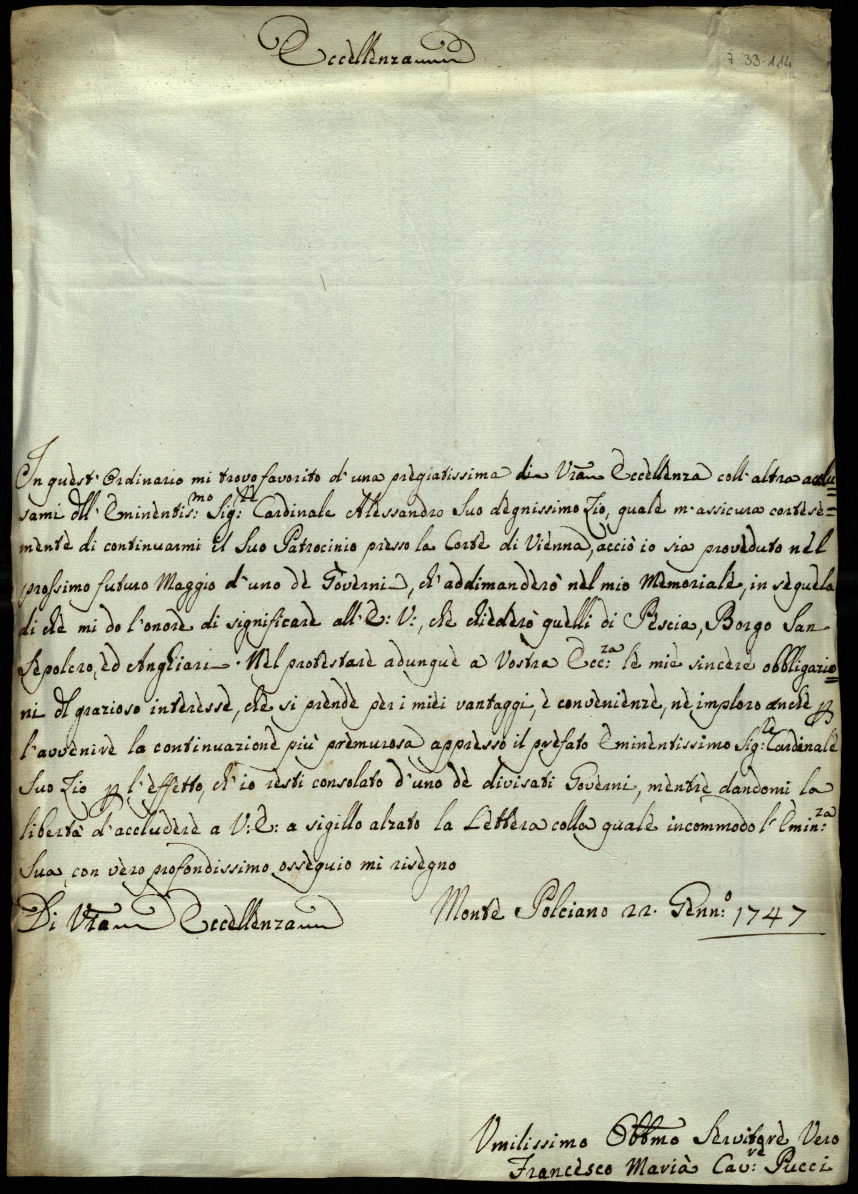 Eccellenza
7.33.114
In quest' Ordinario mi trovo favorito d'una pregiatissima di Vrã Eccellenza coll'altra acclu=
sami dll' Eminentis:mo Sig:re Cardinale Alessandro Suo degnissimo Zio, quale m'assicura cortese=
mente di continuarmi il Suo Patrocinio presso la Corte di Vienna, acciò io sia proveduto nel
prossimo futuro Maggio d'uno de Governi, ch'addimanderò nel mio Memoriale, in seguela
di che mi do l'onore di significare all' E: V:, che chiederò quelli di Pescia, Borgo San
Sepolcro, ed Anghiari. Nel protestare adunque a Vostra Ecc:za le mie sincere obbligazio=
ni dl grazioso interesse, che si prende per i miei vantaggi, e convenienze, ne imploro anche p
l'avvenire la continuazione più premurosa appresso il prefato Eminentissimo Sig:re Cardinale
Suo Zio p l'effetto, ch'io resti consolato d'uno de divisati Governi, mentre dandomi la
libertà d'accludere a V: E: a sigillo alzato la Lettera colla quale incommodo l'Emin:za
Sua, con vero profondissimo ossequio mi risegno
Di Vrã Eccellenza Monte Polciano 22. Genn:o 1747
Umilissimo Obbmo Servitore Vero
Francesco Maria Cav:re Pucci